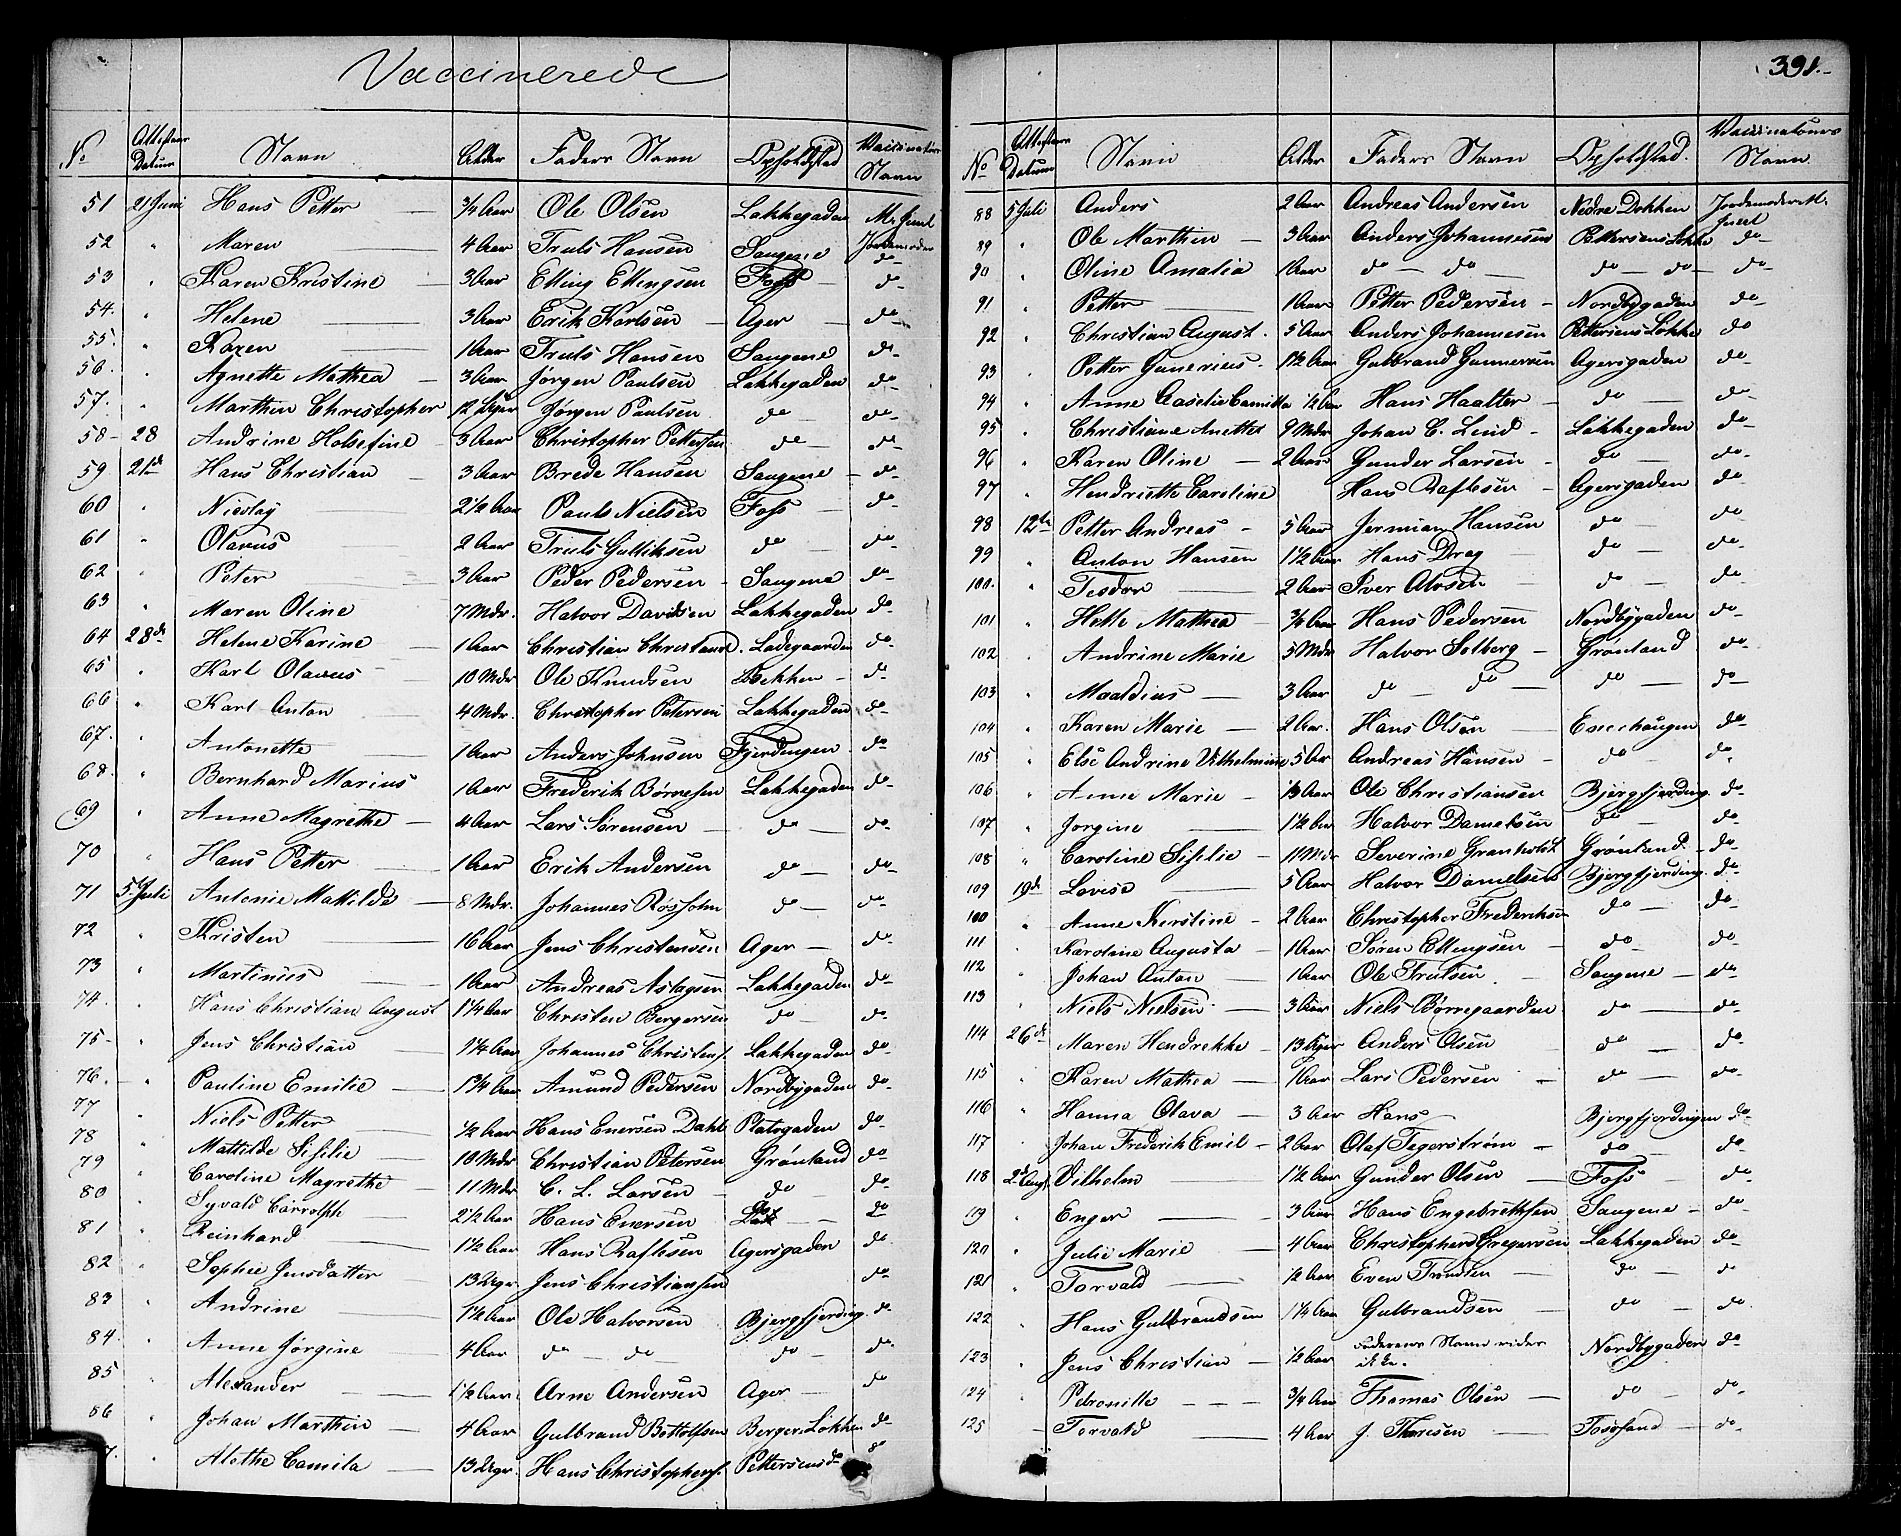 Vaccinerede
No Attestens Datum Navn Alder Faders Navn Opholdsted Vaccinators Navn
51 21 Juni Hans Petter — 3/4 Aar Ole Olsen Lakkegaden M. Juul
52 " Maren — 4 Aar Truls Hansen Saugene Jordemoder do
53 " Karen Kristine — 3 Aar Elling Ellingsen Foss — do
54. " Helene — 3 Aar Erik Karlsen — Ager — do
55. " Karen — 1 Aar Truls Hansen Saugene do
56. " Agnette Mathea — 3 Aar Jørgen Paulsen Lakkegaden do
57. " Marthin Christopher 12 Uger Jørgen Paulsen do do
58 - 28 Andrine Hosefine — 3 Aar Christopher Pettersen do — do
59. 21de Hans Christian — 3 Aar Brede Hansen Saugene — do
60 " Nicolaj 2 1/2 Aar Pauls Nielsen Foss — do
61 " Olavus 2 Aar Truls Gulliksen do — do
62 " Peter — 3 Aar Peder Pedersen - Saugene do
63 " Maren Oline 7 Mdr. Halvor Davidsen Lakkegaden do
64 28de Helene Karine — 1 Aar Christian Christians. Ladegaarden do
65 " Karl Olavus — 10 Mdr Ole Knudsen Bekken — do
66 " Karl Anton — 4 Mdr. Christopher Petersen Lakkegaden do
67. " Antonette — 1 Aar Anders Johnsen Fjerdingen do
68. " Bernhard Marius 1 Aar Frederik Børnesen Lakkegaden do
69 " Anne Magrethe — 4 Aar Lars Sørensen — do — do
70 " Hans Petter — 1 Aar Erik Andersen do — do
71 5. Juli Antonie Mathilde — 8 Mdr. Johannes Røsholm do — do
72 " Kristen — 16 Aar Jens Christensen Ager — do
73 " Martinus — 1 Aar Andreas Aslagsen Lakkegaden do
74. " Hans Christian August 1 1/4 Aar Christen Bergersen do — do
75 - " Jens Christian — 1 1/4 Aar Johannes Christens. Lakkegaden do
76. - " Pauline Emilie — 1 3/4 Aar Amund Pedersen Nordbygaden do
77 " Niels Petter — 1/2 Aar Hans Enersen Dahl Platogaden do
78 " Mathilde Sisilie — 10 Mdr Christian Petersen Grønland do
79 " Caroline Magrethe — 11 Mdr C. L. Larsen — do — do
80 " Syvald Carrolph 2 1/2 Aar Hans Enersen do — do
81 " Reinhard — 1 1/2 Aar Hans Raflesen Agersgaden do
82 " Sophie Jensdatter 13 Uger Jens Christiansen do
83 " Andrine — 1 1/2 Aar Ole Halvorsen Bjergfjerding. do
84. " Anne Jørgine — 4 Aar do — do do — do
85 " Alexander — 1 1/2 Aar Arne Andersen Ager — do
86 " Johan Marthin — 4 Aar Gulbrand Bottolfsen Berger Løkken do
7. Alethe Camila — 13 Uger Hans Christophers. Pettersens do do
391.
No Attestens Datum Navn Alder Faders Navn Opholdsted. Vaccinateurs Navn
88 5 Juli Anders 2 Aar Andreas Andersen Nedre Dokken Jordemoder M. Juul
89 " Ole Marthin — 3 Aar Anders Johannesen Pettersens Løkke do
90 " Oline Amalia 1 Aar do — do — do — do — do
91 " Petter — 1 Aar Petter Pedersen — Nordbygaden do
92 " Christian August. 5 Aar Anders Johannesen Pettersens Løkke do
93 " Petter Gunerius. 1 1/2 Aar Gulbrand Gunnersen Agersgaden do
94 " Anne Camilla 1/2 Aar Hans Haalter — do — do
95 " Christiane Anette 9 Mdr Johan C. Lund — Lakkegaden do
96 " Karen Oline — 2 Aar Gunder Larsen — do — do
97 " Hendriette Caroline Hans Raflesen — Agersgaden do
98 12te Petter Andreas — 5 Aar Jermian Hansen do — do
99 " Anton Hansen 1 1/2 Aar Hans Drag do — do
100. " Tesdor — 2 Aar Iver Olosen — do — do
101 " Helle Mathea 3/4 Aar Hans Pedersen Nordbygaden do
102 " Andrine Marie 5 Mdr Halvor Solberg — Grønland do
103 " Maaldius — 3 Aar do — do — do — do
104 " Karen Marie — 2 Aar. Hans Olsen — Enerhaugen do
105 " Else Andrine Vilhelmine 5 Aar Andreas Hansen — do do
106 " Anne Marie — 1/2 Aar Ole Christiansen Bjergfjerding. do
107 " Jorgine — 1 1/2 Aar Halvor Danielsen do — do
108 " Caroline Sisilie — 11 Mdr Severine Granholt Grønland. - do
109 19de Lovise — 5 Aar Halvor Danielsen Bjergfjerding. do
100 " Anne Kirstine — 2 Aar Christopher Frederiksen do — do
111 " Karoline Augusta — 1 Aar Søren Ellingsen — do — do
112 " Johan Anton — 1 Aar Ole Trulsen Saugene — do
113 " Niels Nielsen — 3 Aar Niels Børregaarden do — do
114 26de Maren Hendrekke — 13 Uger Anders Olsen do — do
115 " Karen Mathea — 1 Aar Lars Pedersen — do — do
116 " Hanna Olava — 3 Aar Hans — Bjergfjerdingen do
117 " Johan Frederik Emil — 2 Aar Olaf Tegerstrøm — do — do
118 2d Aug. Vilhelm — 1 1/2 Aar Gunder Olsen — Foss — do
119 " Enger — 3 Aar Hans Engebrethsen Saugene — do
120 " Julie Marie — 4 Aar Christopher Gregersen Lakkegaden do
121 " Torvald — 1/2 Aar Even Trondsen — do — do
122 " Hans Gulbrandsen 1 1/4 Aar Gulbrandsen — do — do
123 " Jens Christian — 1/2 Aar Faderens Navn vides ikke. Nordbygaden do
124 " Petronille — — — 3/4 Aar Thomas Olsen — do — do
125 — Torvald — 4 Aar J. Thoresen — — do